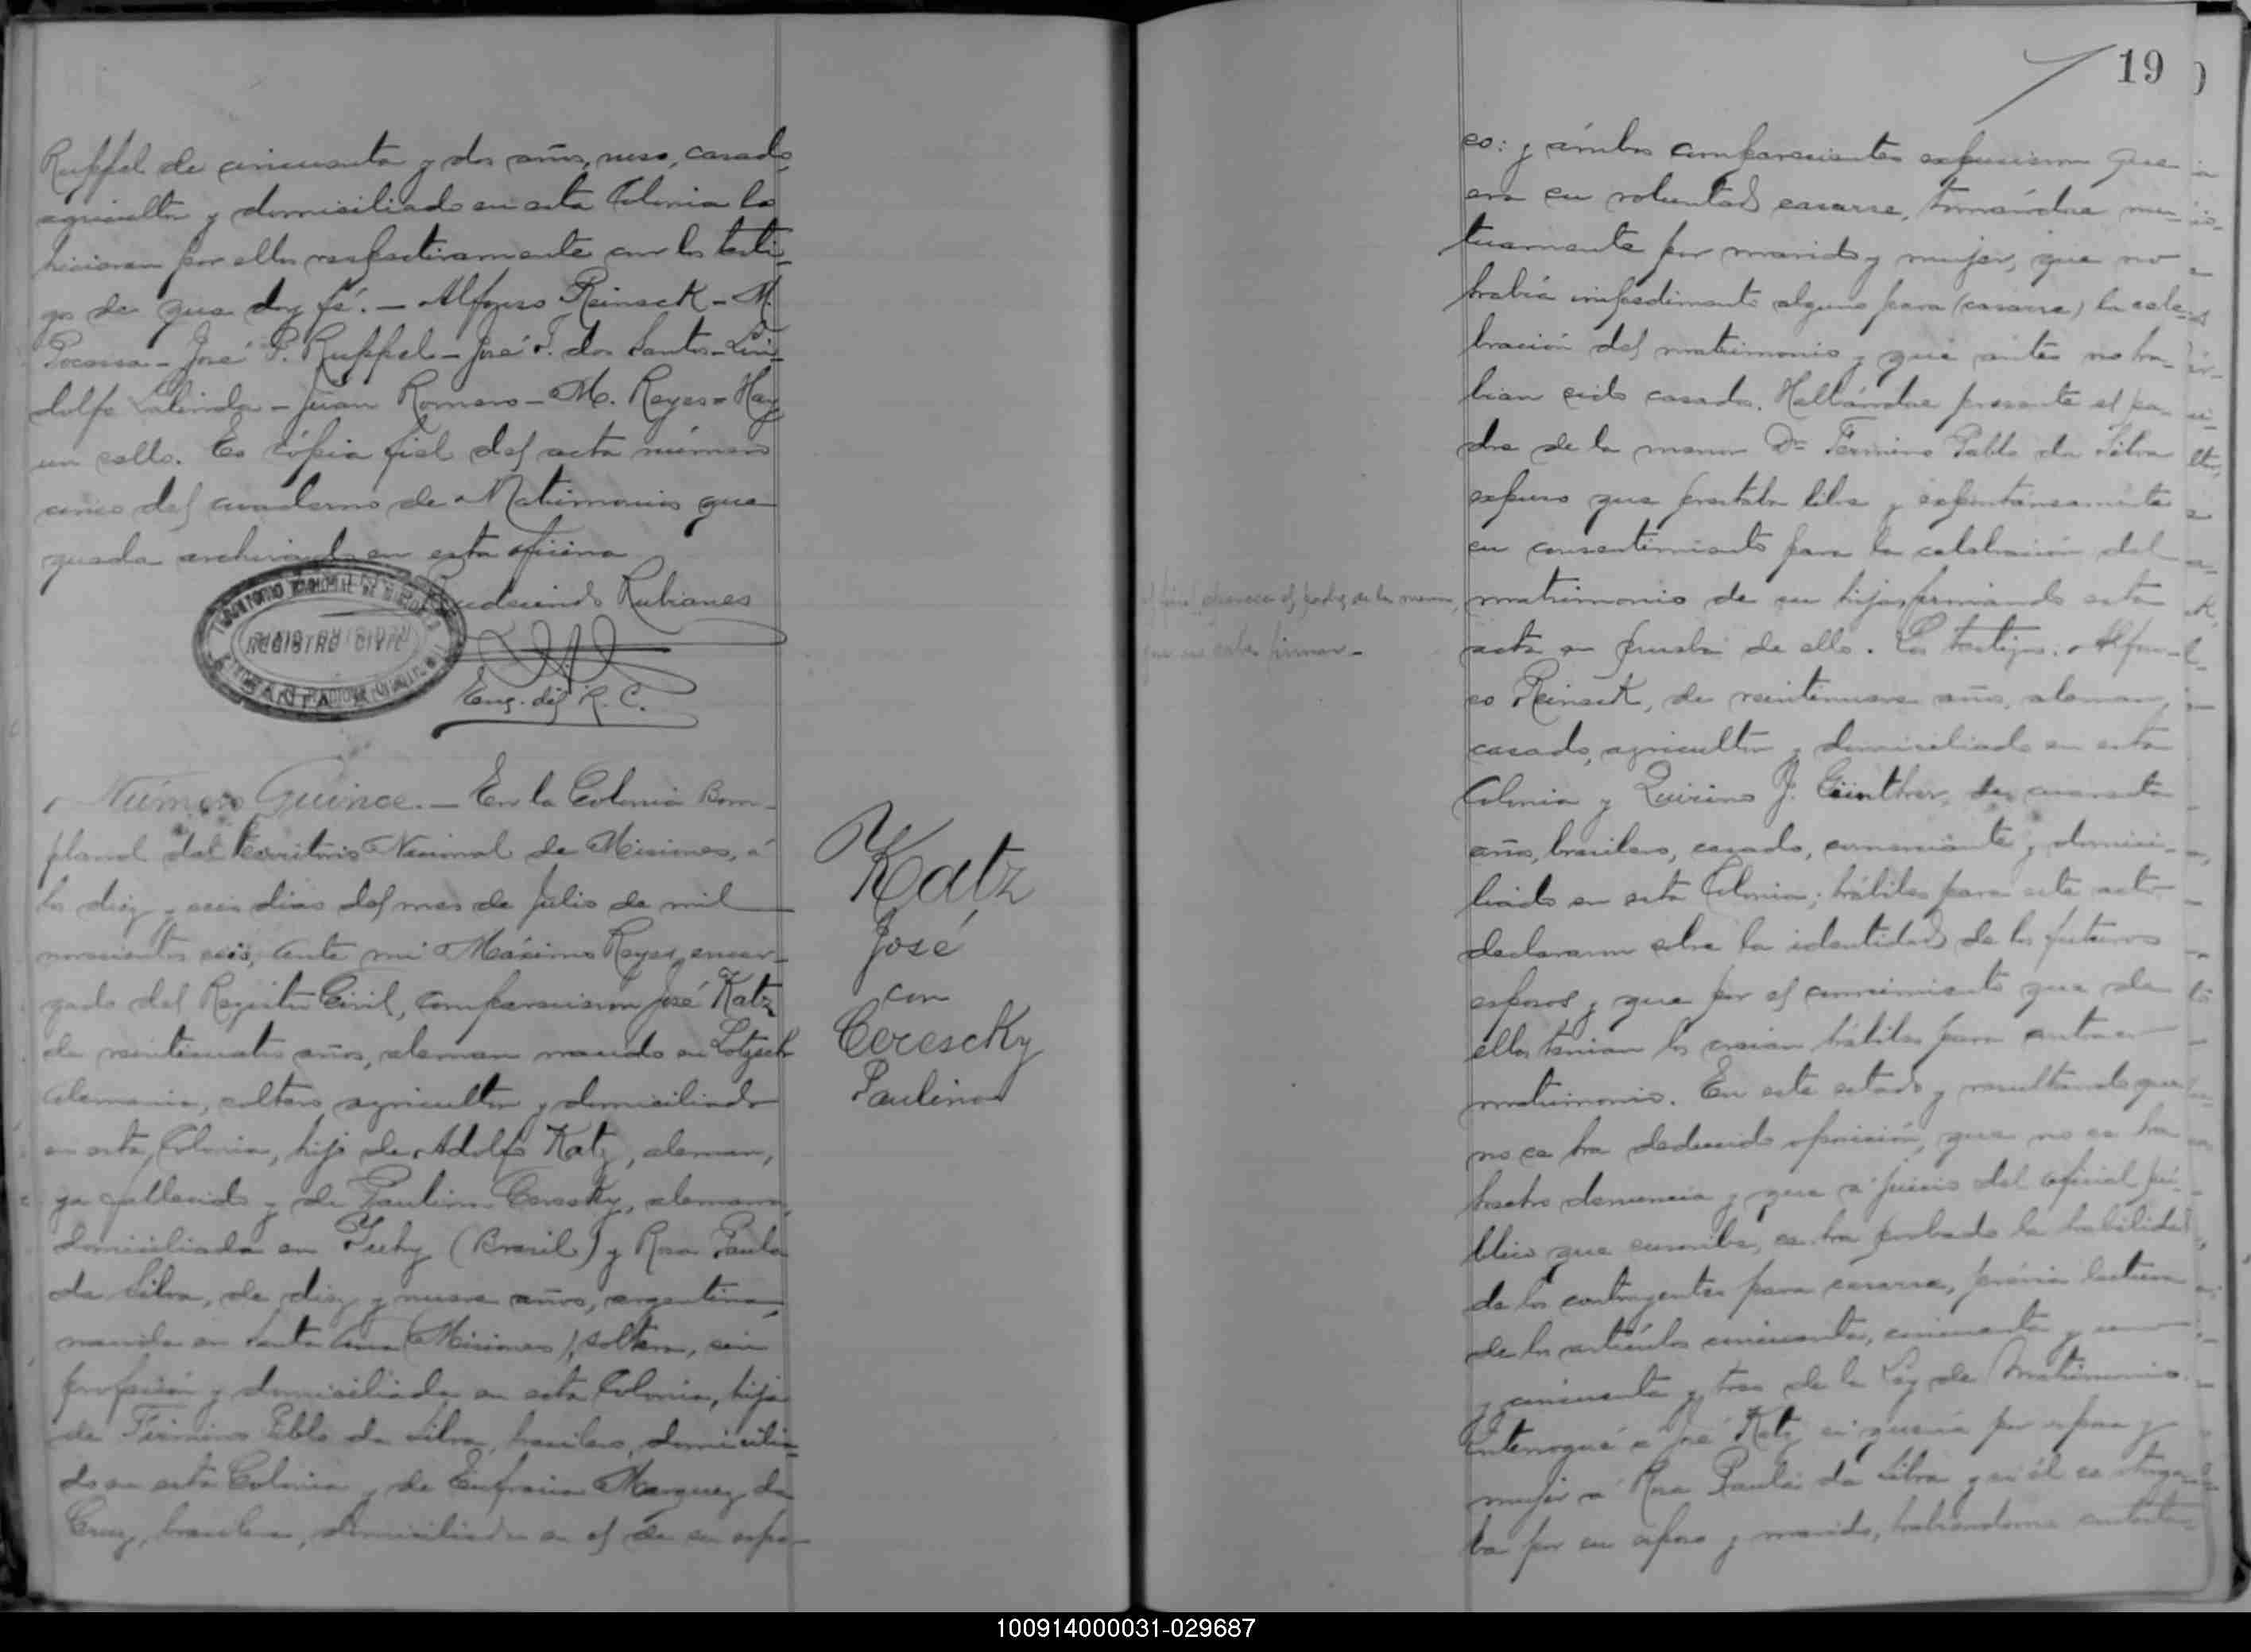 Ruppel de cincuenta y dos años, ruso, casado,
agricultor y domiciliado en esta Colonia lo
hicieron por ellos respectivamente con los testi-
gos de que doy fé. — Alfonso Reineck — M.
José P. Ruppel — José F. dos Santos — Lin-
dolfo — Juan Romero — M. Reyes = Hay
un sello. Es cópia fiel del acta número
cinco del cuaderno de Matrimonios que
queda archivado en esta oficina
Rudecindo Rubianes
Enc. del R. C.
REGISTRO CIVIL
Número Quince. — En la Colonia Bom-
pland del Territorio Nacional de Misiones, á
los diez y seis dias del mes de Julio de mil
novecientos seis, ante mi Máximo Reyes, encar-
gado del Registro Civil, comparecieron José Katz
de veinticuatro años, aleman nacido en
Alemania, soltero, agricultor y domiciliado
en esta Colonia, hijo de Adolfo Katz, aleman,
ya fallecido y de Paulina Ceresky, alemana,
domiciliada en (Brasil) y Rosa Paula
da Silva, de diez y nueve años, argentina,
nacida en Santa Ana (Misiones), soltera, sin
profesión y domiciliada en esta Colonia, hija
de Firmino Pablo da Silva, brasilero, domicilia-
do en esta Colonia y de Eufrasia Marquez da
Cruz, brasilera, domiciliada en el de su espo-
Katz
José
con
Cerescky
Paulina
19
so: y ámbos comparecientes expusieron que
era su voluntad casarse, tomándose mu-
tuamente por marido y mujer, que no
había impedimento alguno para (casarse) la cele-
bración del matrimonio y que antes no ha-
bian sido casados. Hallándose presente el pa-
dre de la menor Dn Fermino Pablo da Silva
expuso que prestaba libre y espontáneamente
su consentimiento para la celebración del
matrimonio de su hija, firmando esta
acta en prueba de ello. Los testigos: Alfon-
so Reineck, de veintinueve años, aleman,
casado, agricultor y domiciliado en esta
Colonia y Quirino J. Günther, de cuarenta
años, brasilero, casado, comerciante y domici-
liado en esta Colonia; hábiles para este acto
declararon sobre la identidad de los futuros
esposos y que por el conocimiento que de
ellos tenian los creian hábiles para contraer
matrimonio. En este estado y resultando que
no se ha deducido oposición, que no se ha
hecho denuncia y que a juicio del oficial pú-
blico que suscribe, se ha probado la habilidad
de los contrayentes para casarse, prévia lectura
de los artículos cincuenta, cincuenta y uno
y cincuenta y tres de la Ley de Matrimonio.
Interrogué a José Katz si queria por esposa y
mujer a Rosa Paula da Silva y si él se otorga-
ba por su esposo y marido, habiendome contesta-
el padre de la menor,
que no sabe firmar. —
100914000031-029687